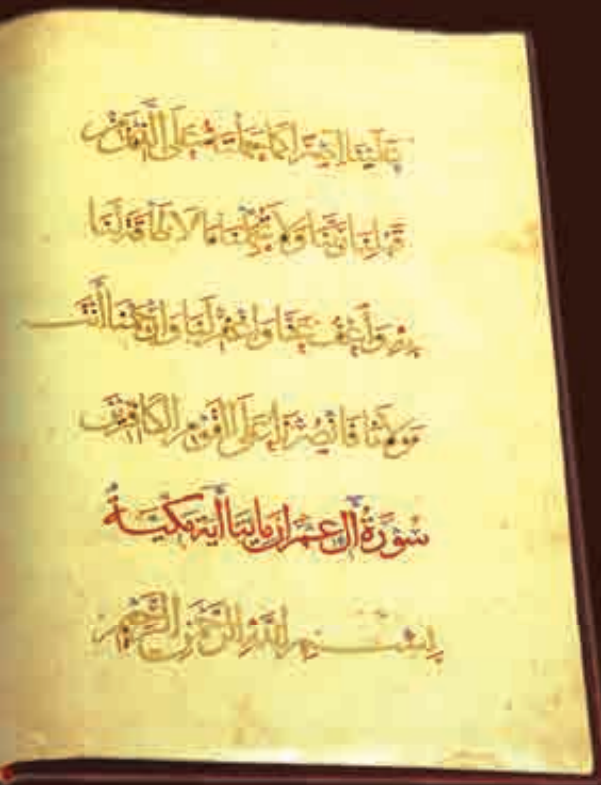 عَلَيْنَا إِصْرًا كَمَا حَمَلْتَهُ عَلَى الَّذِينَ مِنْ
قَبْلِنَا رَبَّنَا وَلَا تُحَمِّلْنَا مَا لَا طَاقَةَ لَنَا
بِهِ وَاعْفُ عَنَّا وَاغْفِرْ لَنَا وَارْحَمْنَا أَنْتَ
مَوْلَانَا فَانْصُرْنَا عَلَى الْقَوْمِ الْكَافِرِينَ
سُورَةُ آلِ عِمْرَانَ مايتا آية مَكِّيَّةٌ
بِسْمِ اللَّهِ الرَّحْمَنِ الرَّحِيمِ